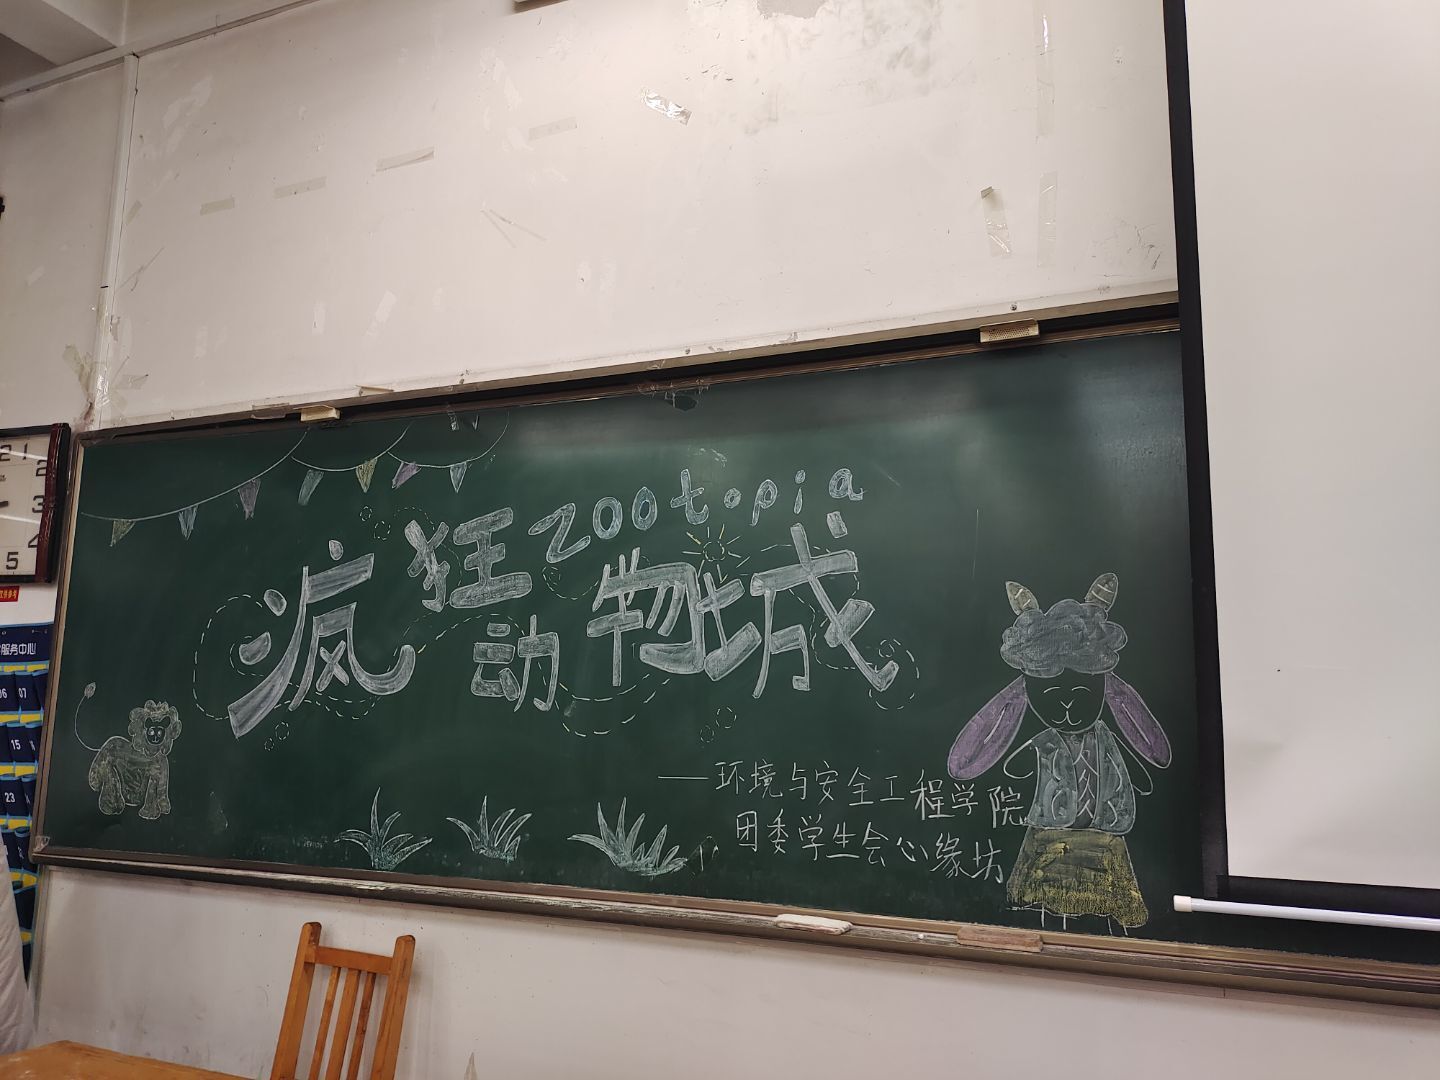 疯狂 zootopia
动物城
——环境与安全工程学院
团委学生会心缘坊
2 1
2
3
4
5
服务中心
06 07
15
23